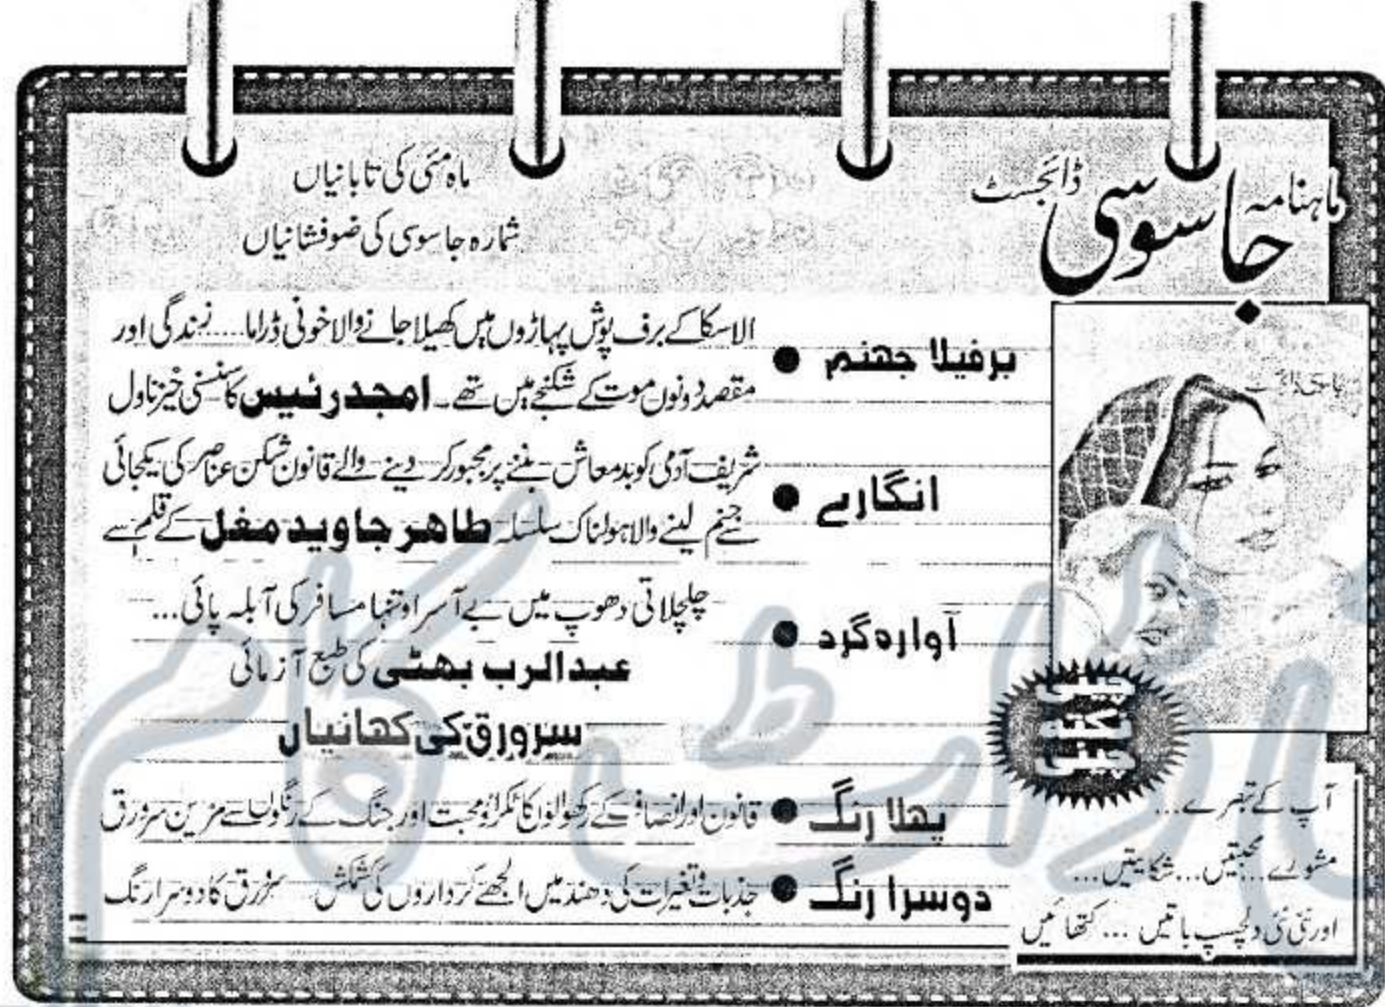 ماہنامہ جاسوسی ڈائجسٹ
ماہ مئی کی تابانیاں
شمارہ جاسوسی کی ضوفشانیاں
برفیلا جهنم ● الاسکا کے برف پوش پہاڑوں میں کھیلا جانے والا خونی ڈراما..... زندگی اور
مقصد دونوں موت کے شکنجے میں تھے۔ امجد رئیس کا سنسنی خیز ناول
انگارے ● شریف آدمی کو بدمعاش بننے پر مجبور کر دینے والے قانون شکن عناصر کی یکجائی
جنم لینے والا ہولناک سلسلہ طاہر جاوید مغل کے قلم سے
آوارہ گرد ● چلچلاتی دھوپ میں بے آسرا و تنہا مسافر کی آبلہ پائی...
عبدالرب بھٹی کی طبع آزمائی
سرورق کی کہانیاں
پہلا رنگ ● قانون اور انصاف کے رکھوالوں کا ٹکراؤ محبت اور جنگ کے رنگوں سے مزین سرورق
دوسرا رنگ ● جذبات و تغیرات کی دھند میں الجھے کرداروں کی کشمکش..... سرورق کا دوسرا رنگ
چینی
نکتہ
چینی
آپ کے تبصرے...
مشورے... محبتیں... شکایتیں...
اور نئی نئی دلچسپ باتیں... کتھائیں